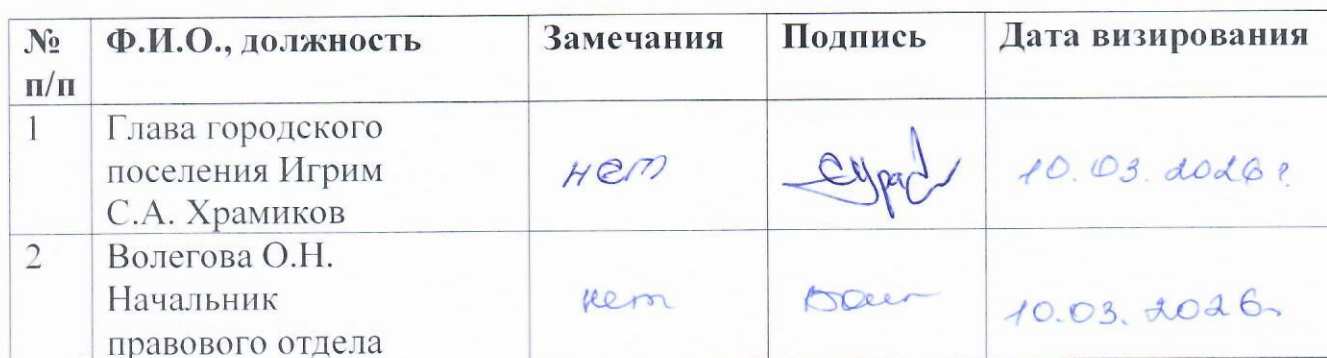 № п/п Ф.И.О., должность Замечания Подпись Дата визирования
1 Глава городского
поселения Игрим
С.А. Храмиков
нет 10.03.2026 г.
2 Волегова О.Н.
Начальник
правового отдела
нет 10.03.2026